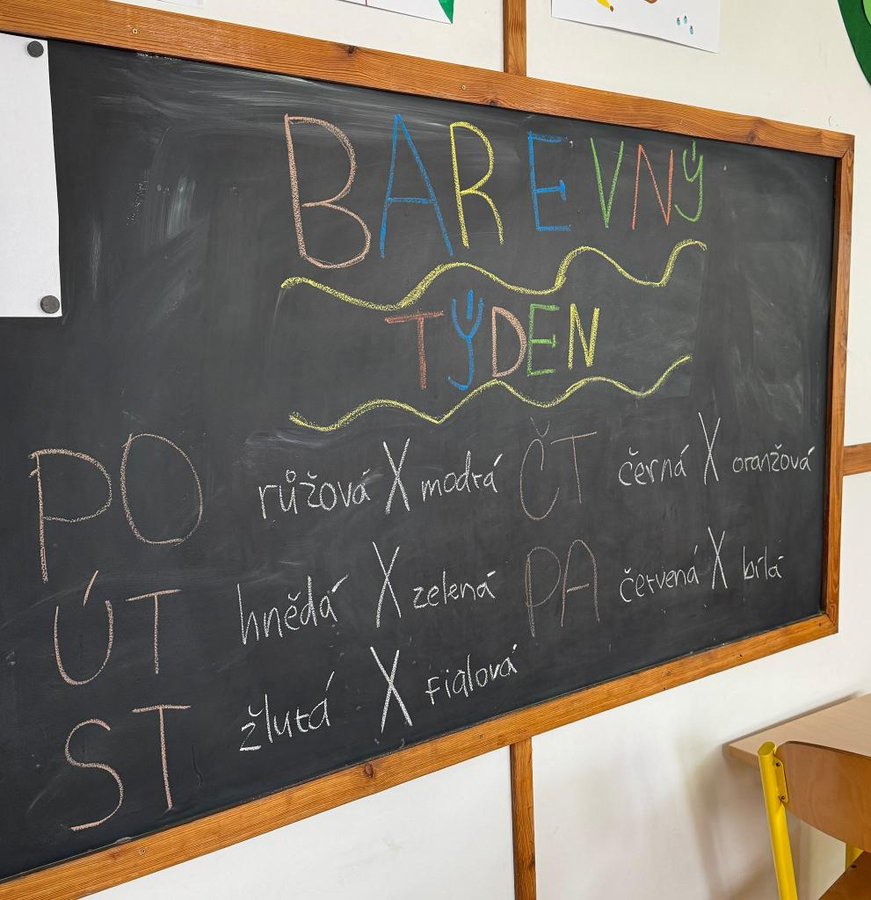 BAREVNÝ
TÝDEN
PO růžová X modrá
ÚT hnědá X zelená
ST žlutá X fialová
ČT černá X oranžová
PA červená X bílá